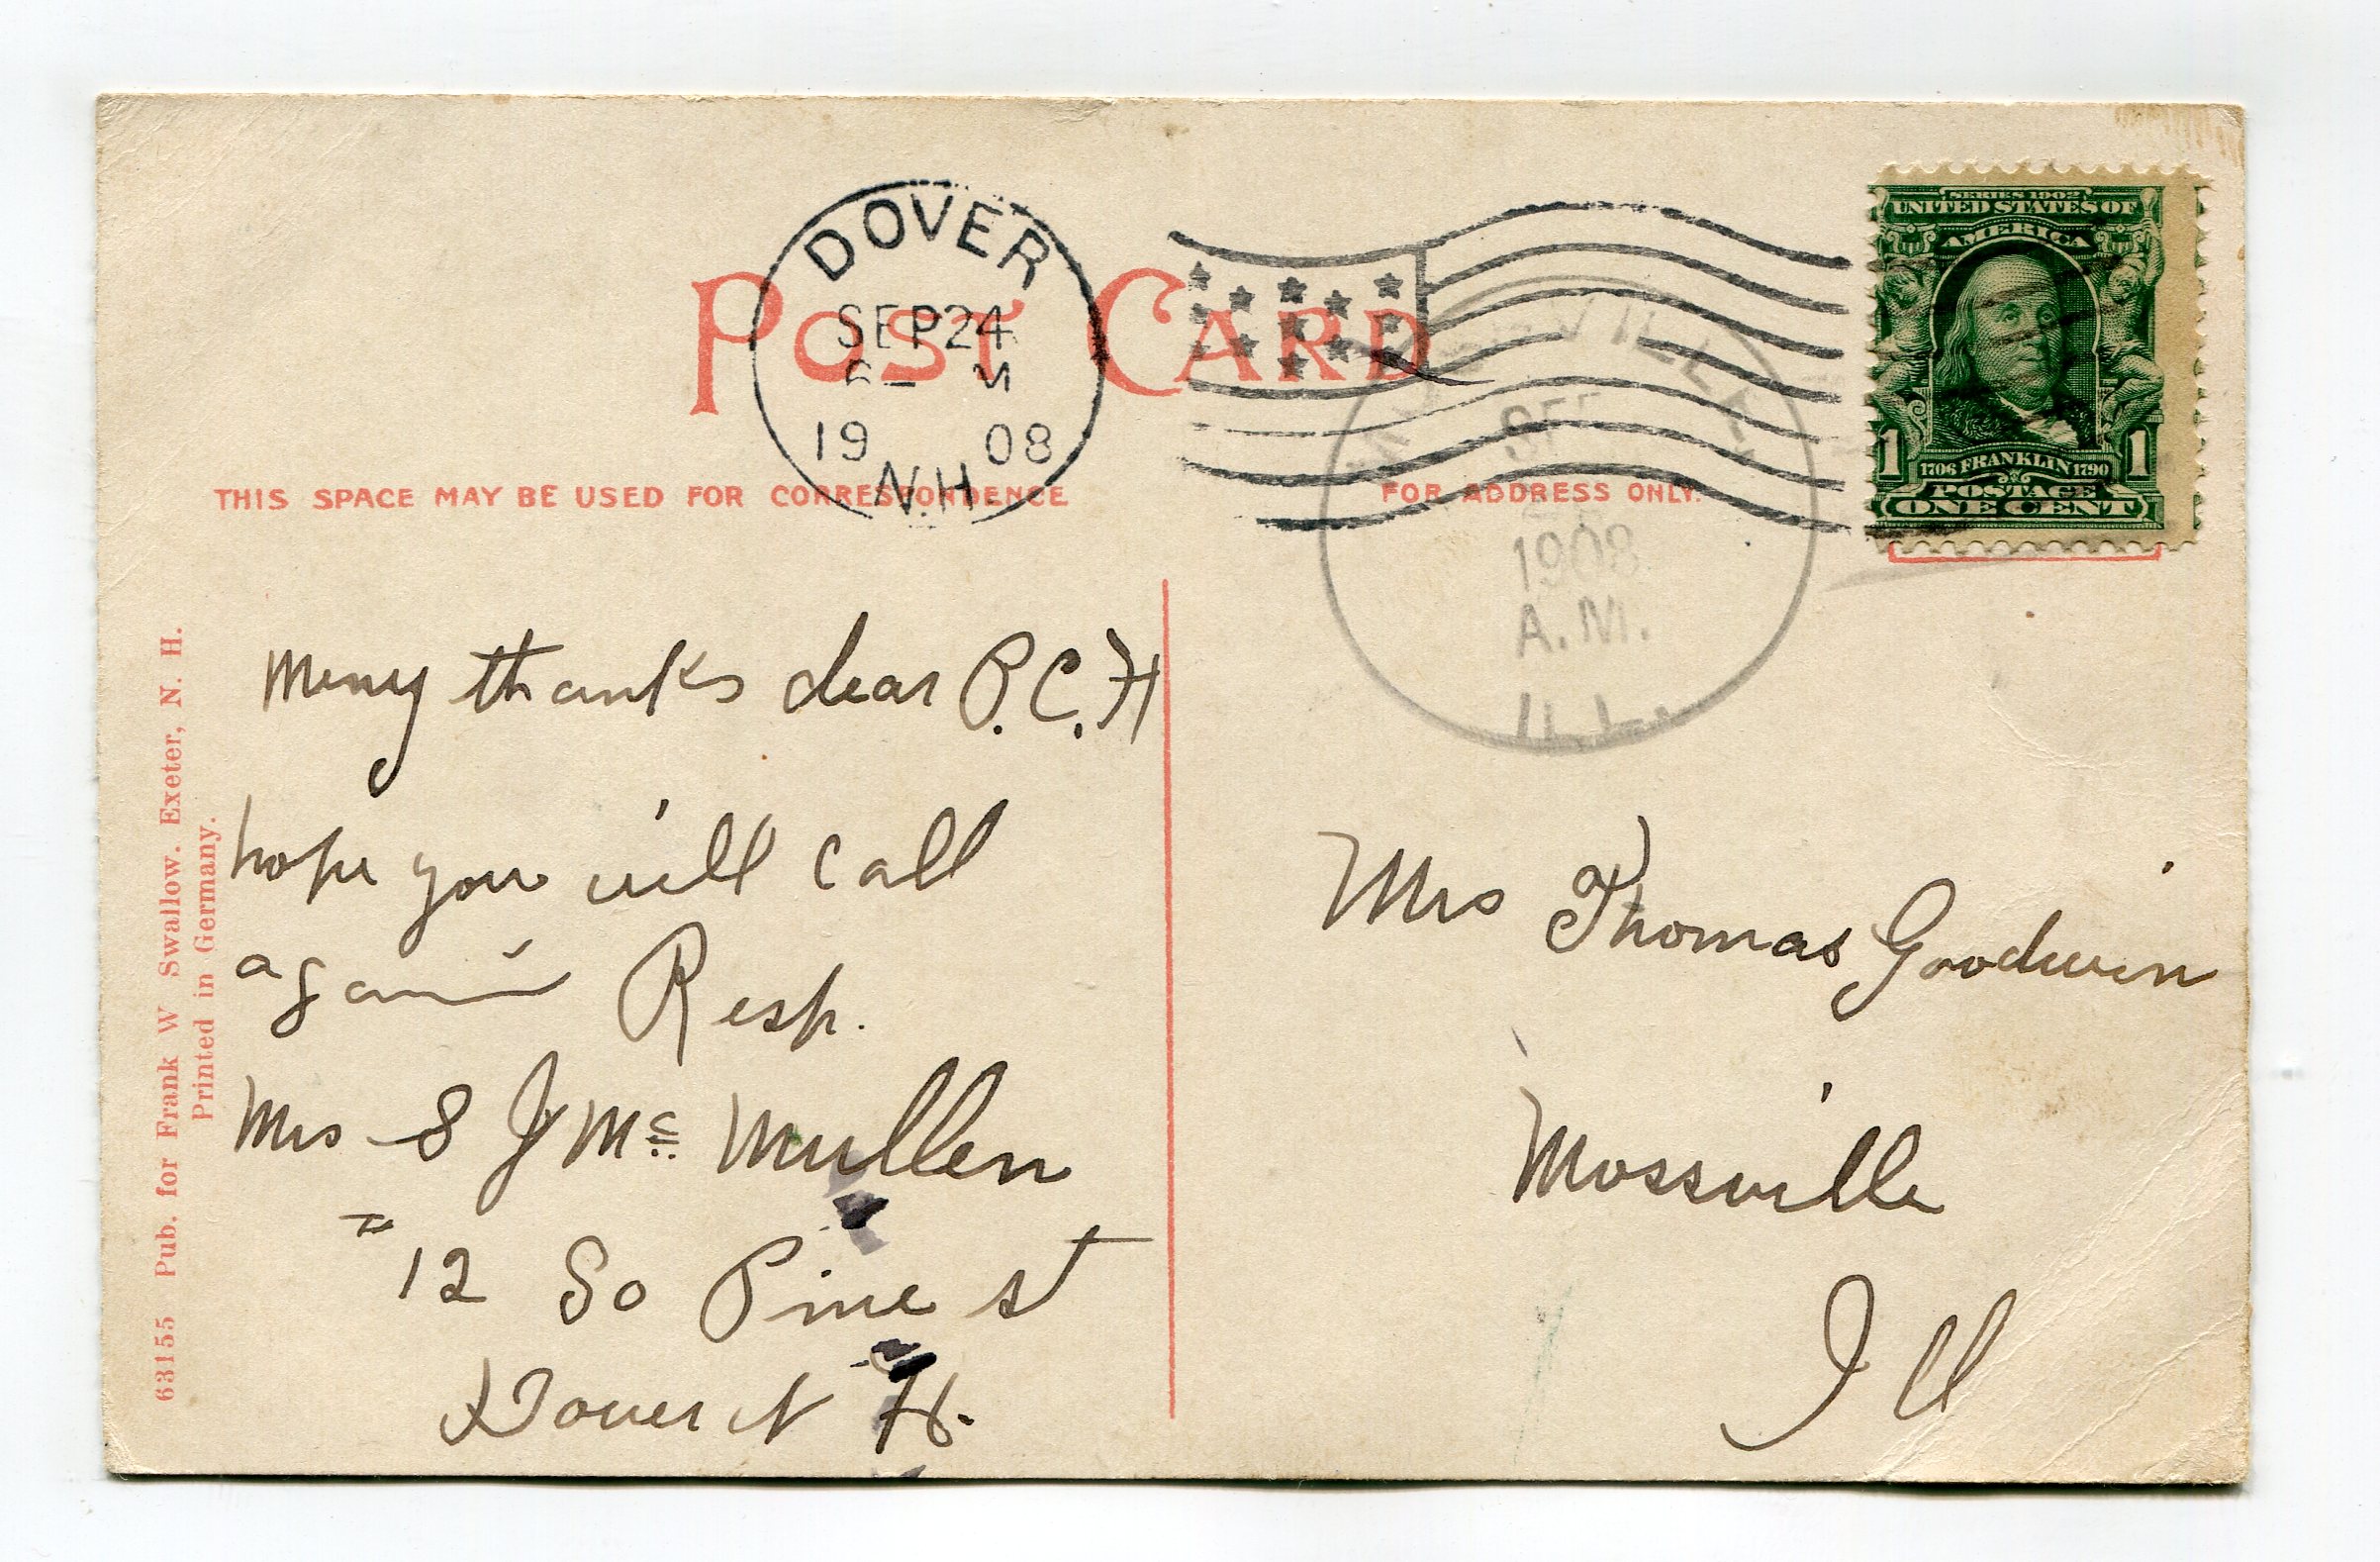 POST CARD
DOVER
SEP 24
M
19 08
N.H.
THIS SPACE MAY BE USED FOR CORRESPONDENCE
FOR ADDRESS ONLY.
MOSSVILLE,
SEP
1908
A.M.
ILL.
SERIES 1902
UNITED STATES OF
AMERICA
1 1
1706 FRANKLIN 1790
POSTAGE
ONE CENT
63155 Pub. for Frank W Swallow. Exeter, N. H.
Printed in Germany.
Meny thanks dear P.C.H
hope you will call
again Resp.
Mrs S J Mc Mullen
12 So Pine st
Dover N H.
Mrs Thomas Goodwin
Mossville
Ill